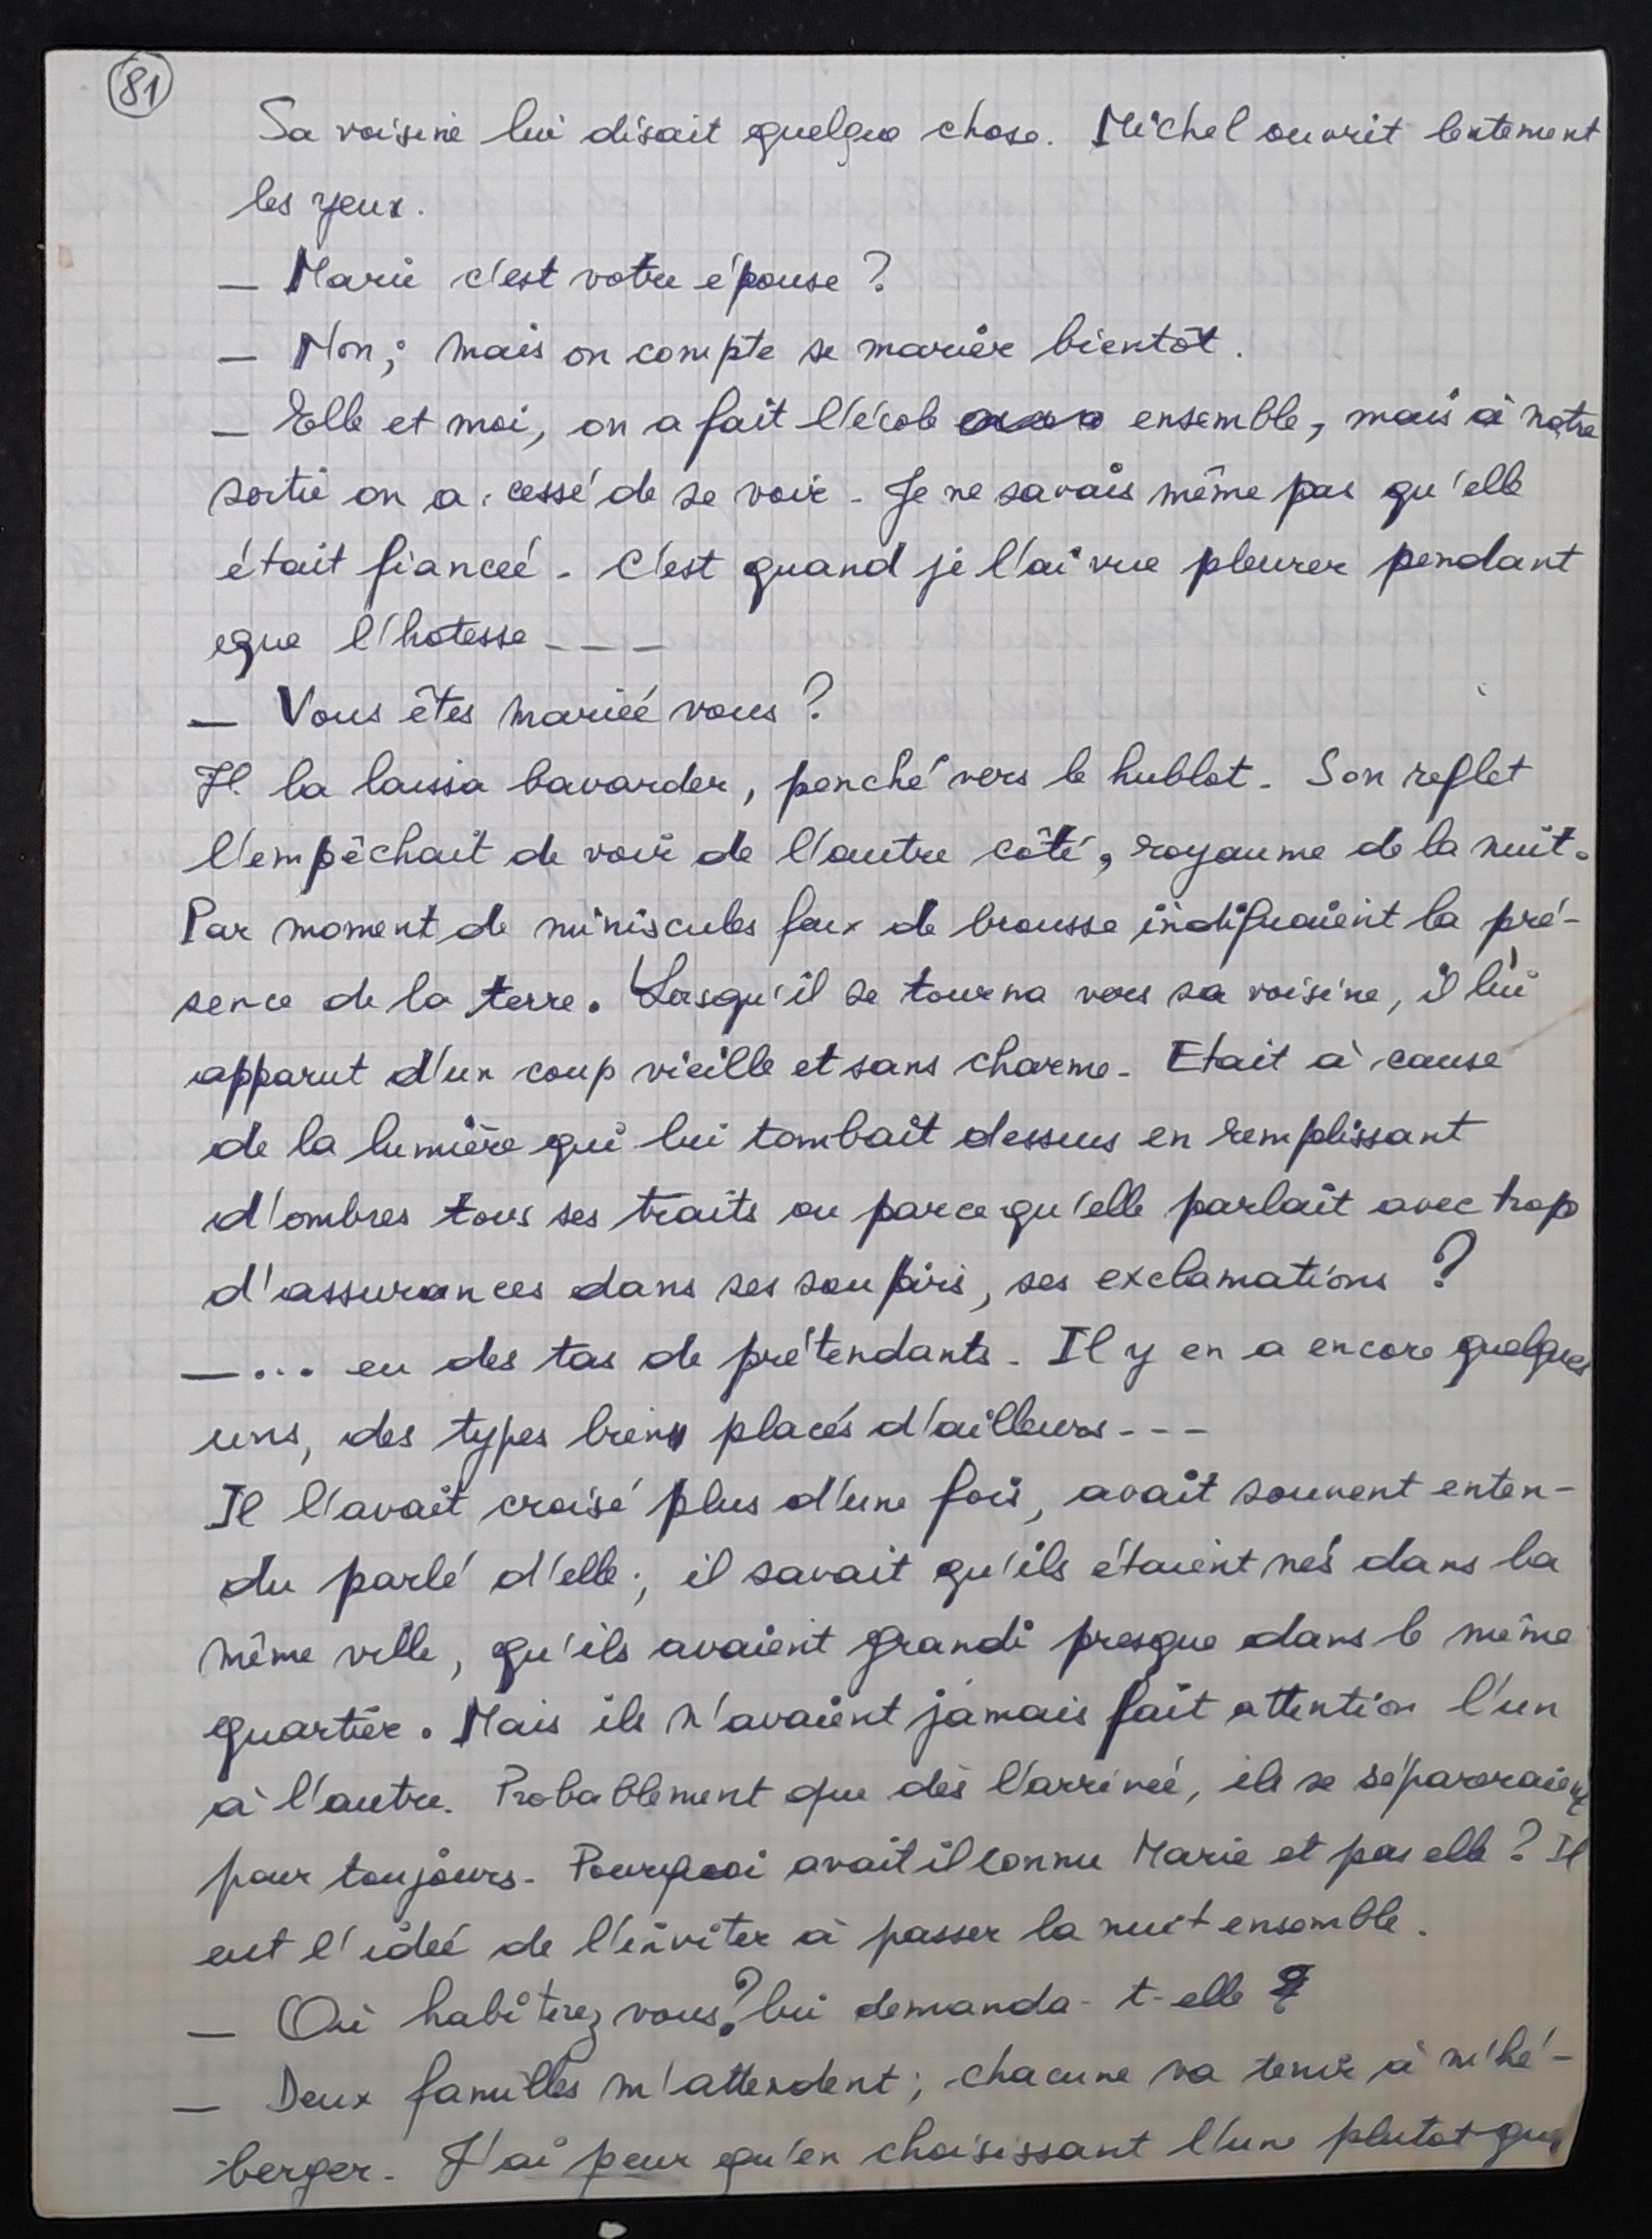 81
Sa voisine lui disait quelque chose. Michel ouvrit lentement
les yeux.
— Marie c'est votre épouse ?
— Non; mais on compte se marier bientôt.
— Elle et moi, on a fait l'école ensemble, mais à notre
sortie on a cessé de se voir - Je ne savais même pas qu'elle
était fiancée - C'est quand je l'ai vue pleurer pendant
que l'hotesse - - -
— Vous êtes mariée vous ?
Il la laissa bavarder, penché vers le hublot - Son reflet
l'empêchait de voir de l'autre côté, royaume de la nuit.
Par moment de miniscules feux de brousse indiquaient la pré-
sence de la terre. Lorsqu'il se tourna vers sa voisine, il lui
apparut d'un coup vieille et sans charme - Etait à cause
de la lumière qui lui tombait dessus en remplissant
d'ombres tous ses traits ou parce qu'elle parlait avec trop
d'assurances dans ses soupirs, ses exclamations ?
—... eu des tas de prétendants - Il y en a encore quelques
uns, des types biens placés d'ailleurs - - -
Il l'avait croisé plus d'une fois, avait souvent enten-
du parlé d'elle; il savait qu'ils étaient nés dans la
même ville, qu'ils avaient grandi presque dans le même
quartier. Mais ils n'avaient jamais fait attention l'un
à l'autre. Probablement que dès l'arrivée, ils se sépareraient
pour toujours - Pourquoi avait il connu Marie et pas elle ? Il
eut l'idée de l'inviter à passer la nuit ensemble.
— Où habiterez vous ? lui demanda-t-elle
— Deux familles m'attendent; chacune va tenir à m'hé-
berger - J'ai peur qu'en choisissant l'une plutot que